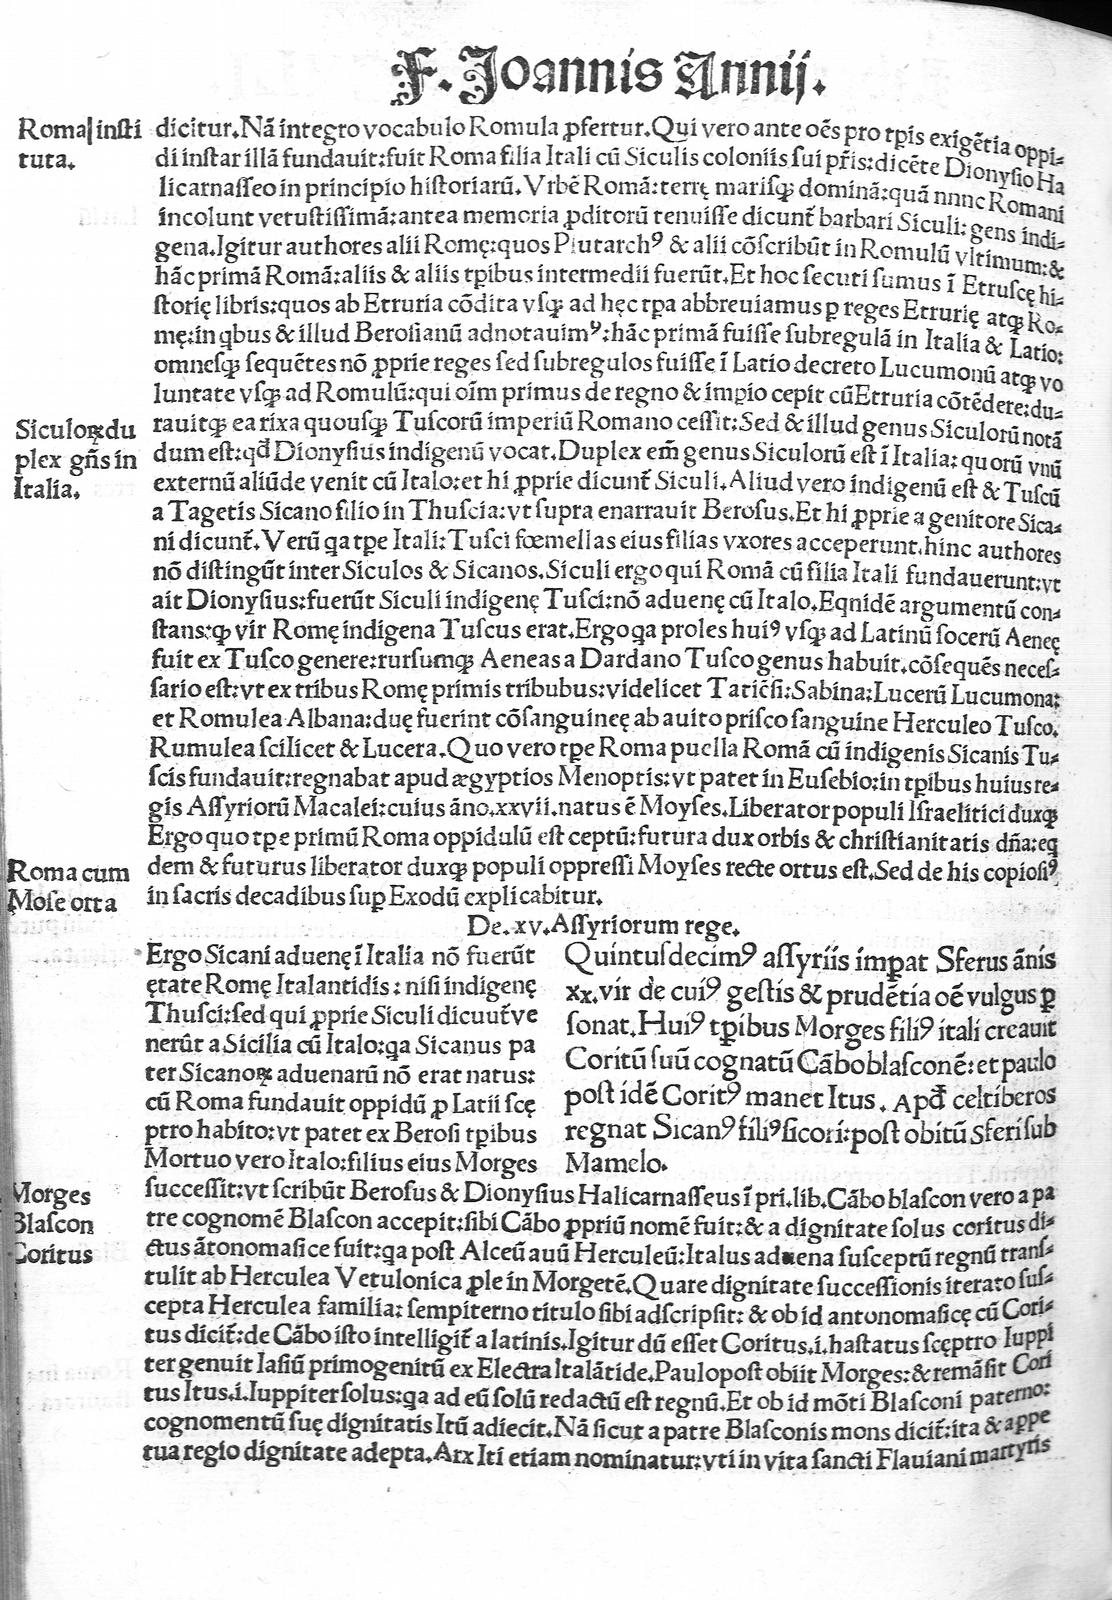 F. Joannis Annij.
Roma insti
tuta.
dicitur.Nã integro vocabulo Romula ꝓfertur.Qui vero ante oẽs pro tꝑis exigẽtia oppi⸗
di instar illã fundauit:fuit Roma filia Itali cũ Siculis coloniis sui pr̃is:dicẽte Dionysio Ha
licarnasseo in principio historiarũ.Vrbẽ Romã:terrę marisqꝫ dominã:quã nnnc Romani
incolunt vetustissimã:antea memoria ꝓditorũ tenuisse dicunt̃ barbari Siculi:gens indi⸗
gena.Igitur authores alii Romę:quos Plutarchꝰ & alii cõscribũt in Romulũ vltimum:&
hãc primã Romã:aliis & aliis tꝑibus intermedii fuerũt.Et hoc secuti sumus ĩ Etruscę hi⸗
storię libris:quos ab Etruria cõdita vsqꝫ ad hęc tꝑa abbreuiamus ꝑ reges Etrurię atqꝫ Ro⸗
mę:in qbus & illud Berosianũ adnotauimꝰ:hãc primã fuisse subregulã in Italia & Latio:
omnesqꝫ sequẽtes nõ ꝓprie reges sed subregulos fuisse ĩ Latio decreto Lucumonũ atqꝫ vo
luntate vsqꝫ ad Romulũ:qui oĩm primus de regno & impio cepit cũ Etruria cõtẽdere:du⸗
Siculoꝝ du
plex gñs in
Italia.
rauitqꝫ ea rixa quousqꝫ Tuscorũ imperiũ Romano cessit:Sed & illud genus Siculorũ notã
dum est:qđ Dionysius indigenũ vocat.Duplex em̃ genus Siculorũ est ĩ Italia:quorũ vnũ
externũ aliũde venit cũ Italo:et hi ꝓprie dicunt̃ Siculi.Aliud vero indigenũ est & Tuscũ
a Tagetis Sicano filio in Thuscia:vt supra enarrauit Berosus.Et hi ꝓprie a genitore Sica⸗
ni dicunt̃.Verũ qa tꝑe Itali:Tusci fœmellas eius filias vxores acceperunt.hinc authores
nõ distingũt inter Siculos & Sicanos.Siculi ergo qui Romã cũ filia Itali fundauerunt:vt
ait Dionysius:fuerũt Siculi indigenę Tusci:nõ aduenę cũ Italo.Eqnidẽ argumentũ con⸗
stans:ꝙ vir Romę indigena Tuscus erat.Ergo qa proles huiꝰ vsqꝫ ad Latinũ socerũ Aeneę
fuit ex Tusco genere:rursumqꝫ Aeneas a Dardano Tusco genus habuit.cõsequẽs neces⸗
sario est:vt ex tribus Romę primis tribubus:videlicet Taticẽsi:Sabina:Lucerũ Lucumona:
et Romulea Albana:duę fuerint cõsanguineę ab auito prisco sanguine Herculeo Tusco.
Rumulea scilicet & Lucera.Quo vero tꝑe Roma puella Romã cũ indigenis Sicanis Tu⸗
scis fundauit:regnabat apud ægyptios Menoptis:vt patet in Eusebio:in tꝑibus huius re⸗
gis Assyriorũ Macalei:cuius ãno.xxvii.natus ẽ Moyses.Liberator populi Israelitici duxqꝫ
Ergo quo tꝑe primũ Roma oppidulũ est ceptũ:futura dux orbis & christianitatis dña:eq
Roma cum
Mose orta
dem & futurus liberator duxqꝫ populi oppressi Moyses recte ortus est.Sed de his copiosiꝰ
in sacris decadibus suꝑ Exodũ explicabitur.
De.xv.Assyriorum rege.
Ergo Sicani aduenę ĩ Italia nõ fuerũt
ętate Romę Italantidis: nisi indigenę
Thusci:sed qui ꝓprie Siculi dicuut̃ ve
nerũt a Sicilia cũ Italo:qa Sicanus pa
ter Sicanoꝝ aduenarũ nõ erat natus:
cũ Roma fundauit oppidũ ꝑ Latii scę
ptro habito:vt patet ex Berosi tꝑibus
Mortuo vero Italo:filius eius Morges
Quintusdecimꝰ assyriis imꝑat Sferus ãnis
xx.vir de cuiꝰ gestis & prudẽtia oẽ vulgus ꝑ
sonat.Huiꝰ tꝑibus Morges filiꝰ itali creauit
Coritũ suũ cognatũ Cãboblasconẽ:et paulo
post idẽ Coritꝰ manet Itus. Apđ celtiberos
regnat Sicanꝰ filiꝰ sicori:post obitũ Sferi sub
Mamelo.
Morges
Blascon
Coritus
successit:vt scribũt Berosus & Dionysius Halicarnasseus ĩ pri.lib.Cãbo blascon vero a pa
tre cognomẽ Blascon accepit:sibi Cãbo ꝓpriũ nomẽ fuit:& a dignitate solus coritus di⸗
ctus ãtonomasice fuit:qa post Alceũ auũ Herculeũ:Italus aduena susceptũ regnũ trans⸗
tulit ab Herculea Vetulonica ꝓle in Morgetẽ.Quare dignitate successionis iterato sus⸗
cepta Herculea familia: sempiterno titulo sibi adscripsit: & ob id antonomasicę cũ Cori⸗
tus dicit̃:de Cãbo isto intelligit̃ a latinis.Igitur dũ esset Coritus.i.hastatus scęptro Iuppi
ter genuit Iasiũ primogenitũ ex Electra Italãtide.Paulopost obiit Morges:& remãsit Cori
tus Itus.i.Iuppiter solus:qa ad eũ solũ redactũ est regnũ.Et ob id mõti Blasconi paterno:
cognomentũ suę dignitatis Itũ adiecit.Nã sicut a patre Blasconis mons dicit̃:ita & appe
tua regio dignitate adepta.Arx Iti etiam nominatur:vti in vita sancti Flauiani martyris